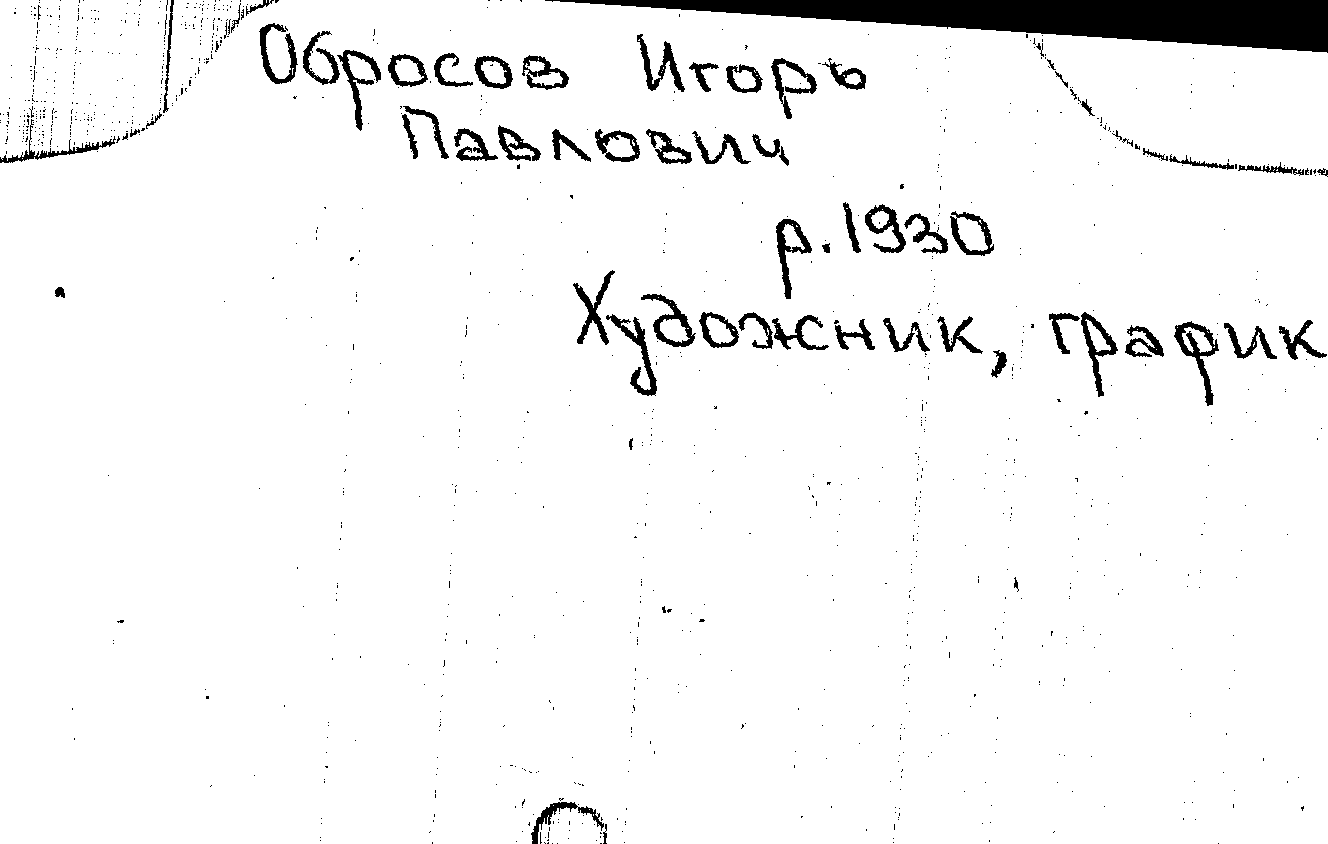 Обросов Игорь
Павлович
р. 1930
Художник, график